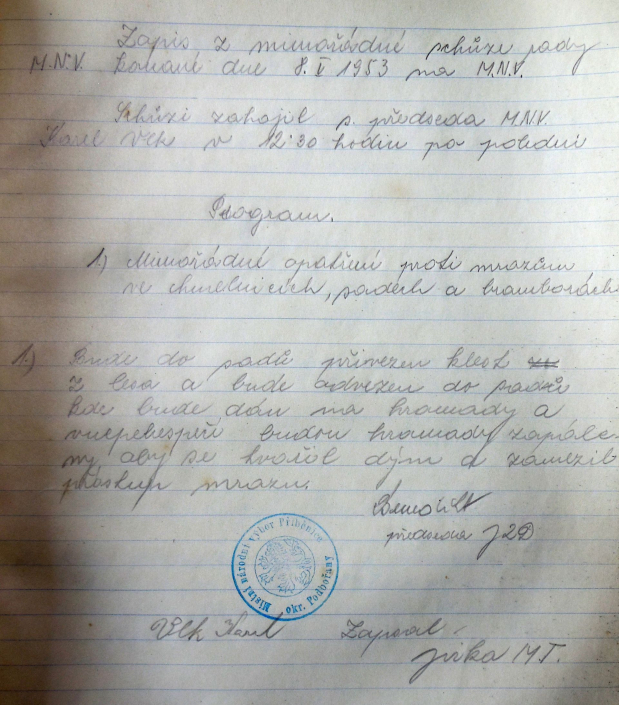 Zapis z mimořádné schůze rady
M.N.V. konané dne 8. V 1953 na M.N.V.
Schůzi zahájil s. předseda M.N.V.
Karel Vlk v 12:30 hodin po poledni
Program.
1) Mimořádné opatření proti mrazům
ve chmelnicích, sadech a bramborách
1.) Bude do sadů přivezen klest
z lesa a bude odvezen do sadů
kde bude dán na hromady a
budou hromady zapále-
ny aby se tvořil dým a zamezil
mrazu.
předseda JZD
Místní národní výbor Příběnice
okr. Podbořany
Vlk Karel Zapsal
Jirka M.T.